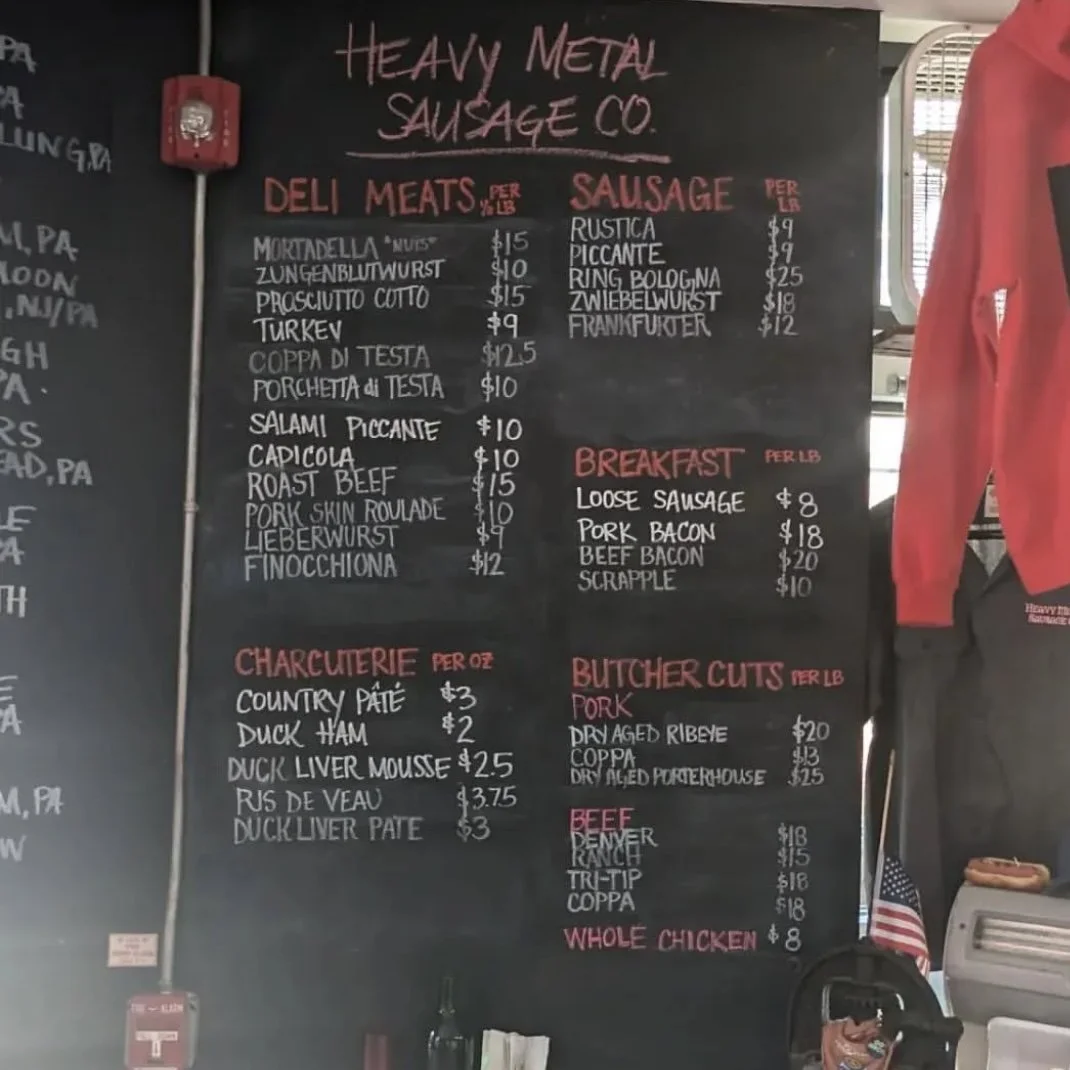 PA
PA
LUNG, PA
M, PA
LOON
, NJ/PA
GH
PA.
RS
EAD, PA
LE
PA
TH
E
PA
M, PA
W
HEAVY METAL
SAUSAGE CO.
DELI MEATS PER ½ LB
MORTADELLA "NUTS" $15
ZUNGENBLUTWURST $10
PROSCIUTTO COTTO $15
TURKEY $9
COPPA DI TESTA $12.5
PORCHETTA di TESTA $10
SALAMI PICCANTE $10
CAPICOLA $10
ROAST BEEF $15
PORK SKIN ROULADE $10
LIEBERWURST $9
FINOCCHIONA $12
CHARCUTERIE PER OZ
COUNTRY PÂTÉ $3
DUCK HAM $2
DUCK LIVER MOUSSE $2.5
RIS DE VEAU $3.75
DUCK LIVER PATE $3
SAUSAGE PER LB
RUSTICA $9
PICCANTE $9
RING BOLOGNA $25
ZWIEBELWURST $18
FRANKFURTER $12
BREAKFAST PER LB
LOOSE SAUSAGE $8
PORK BACON $18
BEEF BACON $20
SCRAPPLE $10
BUTCHER CUTS PER LB
PORK
DRY AGED RIBEYE $20
COPPA $13
DRY AGED PORTERHOUSE $25
BEEF
DENVER $18
RANCH $15
TRI-TIP $18
COPPA $18
WHOLE CHICKEN $8
Heavy
Sausage
FIRE ALARM
PULL DOWN